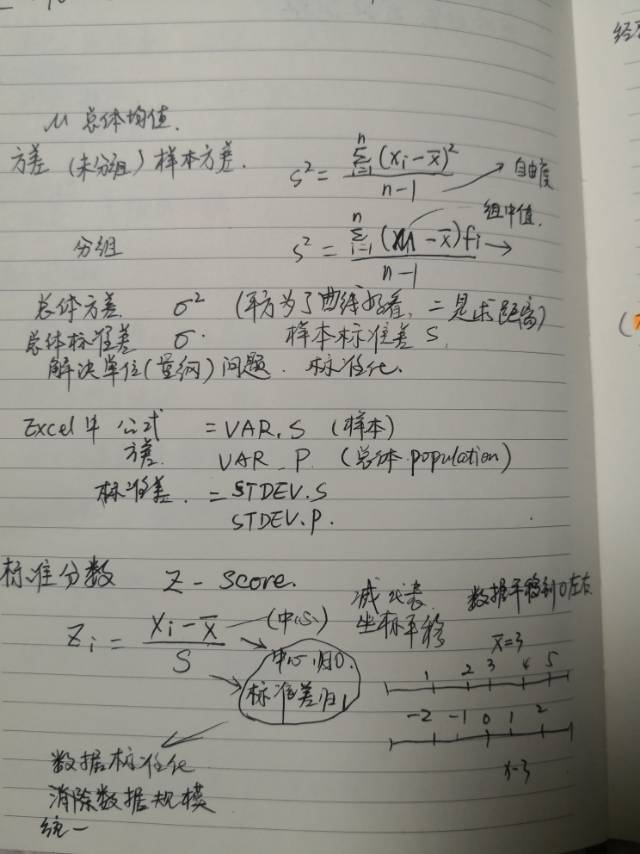 μ 总体均值.
方差 (未分组) 样本方差. s² = Σⁿᵢ₌₁(xᵢ-x̄)² / n-1 → 自由度
组中值.
分组 s² = Σⁿᵢ₌₁(M -x̄)fᵢ / n-1 →
总体方差 σ² (平方为了曲线好看, 二是求距离)
总体标准差 σ. 样本标准差 S.
解决单位(量纲)问题. 标准化.
Excel中 公式 = VAR.S (样本)
方差. VAR.P. (总体 population)
标准差. = STDEV.S
STDEV.P.
标准分数 Z-score.
减 代表 数据平移到0左右
Zᵢ = xᵢ-x̄ / S (中心) 坐标平移
中心归0.
标准差归1
x̄=3
1 2 3 4 5
-2 -1 0 1 2
x-3
数据标准化
消除数据规模
统一
经